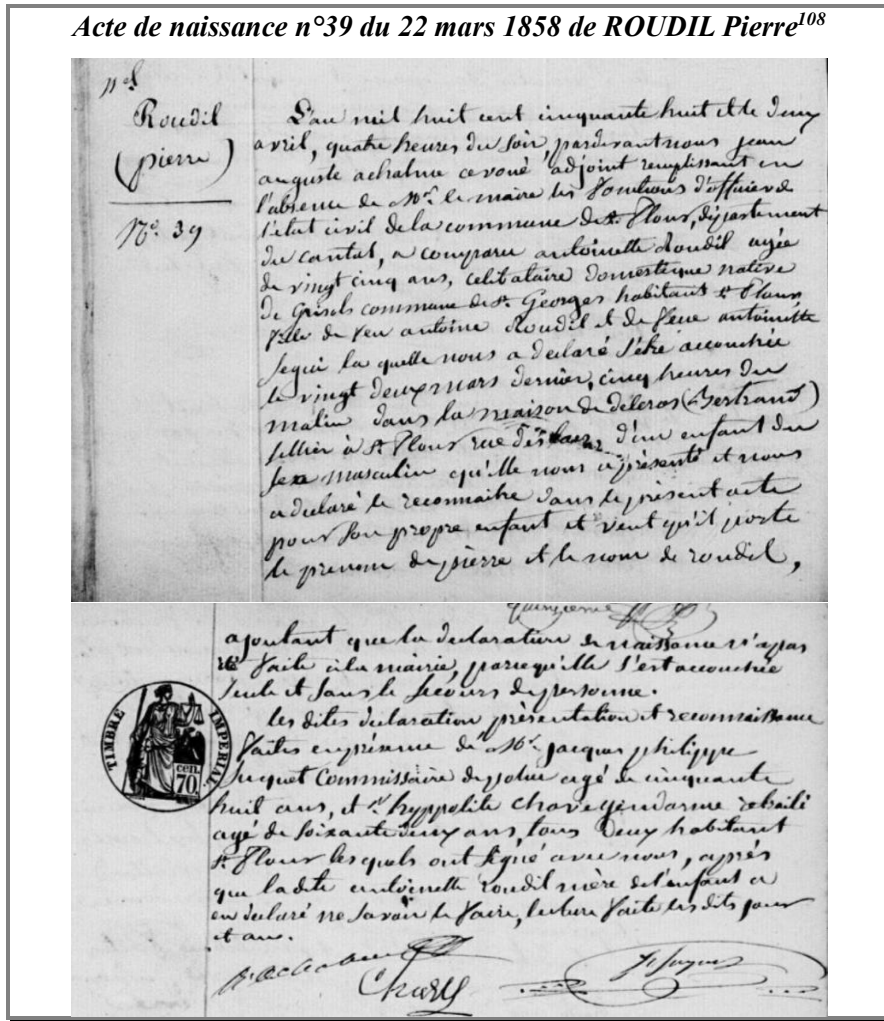 Acte de naissance n°39 du 22 mars 1858 de ROUDIL Pierre108
nel
Roudil
(pierre)
No. 39
L'an mil huit cent cinquante huit et le deux
avril, quatre heures du soir, pardevant nous jean
auguste achalme avoué adjoint remplissant en
l'absence de Mr. le maire les fonctions d'officier de
l'état civil de la commune de St. Flour, département
du cantal, a comparu antoinette Roudil agée
de vingt cinq ans, celibataire domestique native
de Grisols commune de St. Georges habitant St. Flour
fille de feu antoine Roudil et de feue antoinette
Segui la quelle nous a declaré s'être accouchée
le vingt deux mars dernier, cinq heures du
matin dans la maison de delcros (Bertrand)
sellier à St Flour rue des d'un enfant du
sexe masculin qu'elle nous a présenté et nous
a declaré le reconnaitre dans le présent acte
pour son propre enfant et veut qu'il porte
le prenom de pierre et le nom de roudil,
quinzième
ajoutant que la declaration de naissance n'a pas
été faite à la mairie, parcequ'elle s'est accouchée
seule et sans le secours de personne.
les dites declaration présentation et reconnaissance
faites en présence de Mr. jacques philippe
Juquet Commissaire de police agé de cinquante
huit ans, et Sr. hyppolite Chave gendarme retraité
agé de soixante deux ans, tous deux habitant
St. Flour lesquels ont signé avec nous, après
que la dite antoinette roudil mère de l'enfant a
eu declaré ne savoir le faire, lecture faite les dits jour
et an.
TIMBRE IMPERIAL
cen.
70